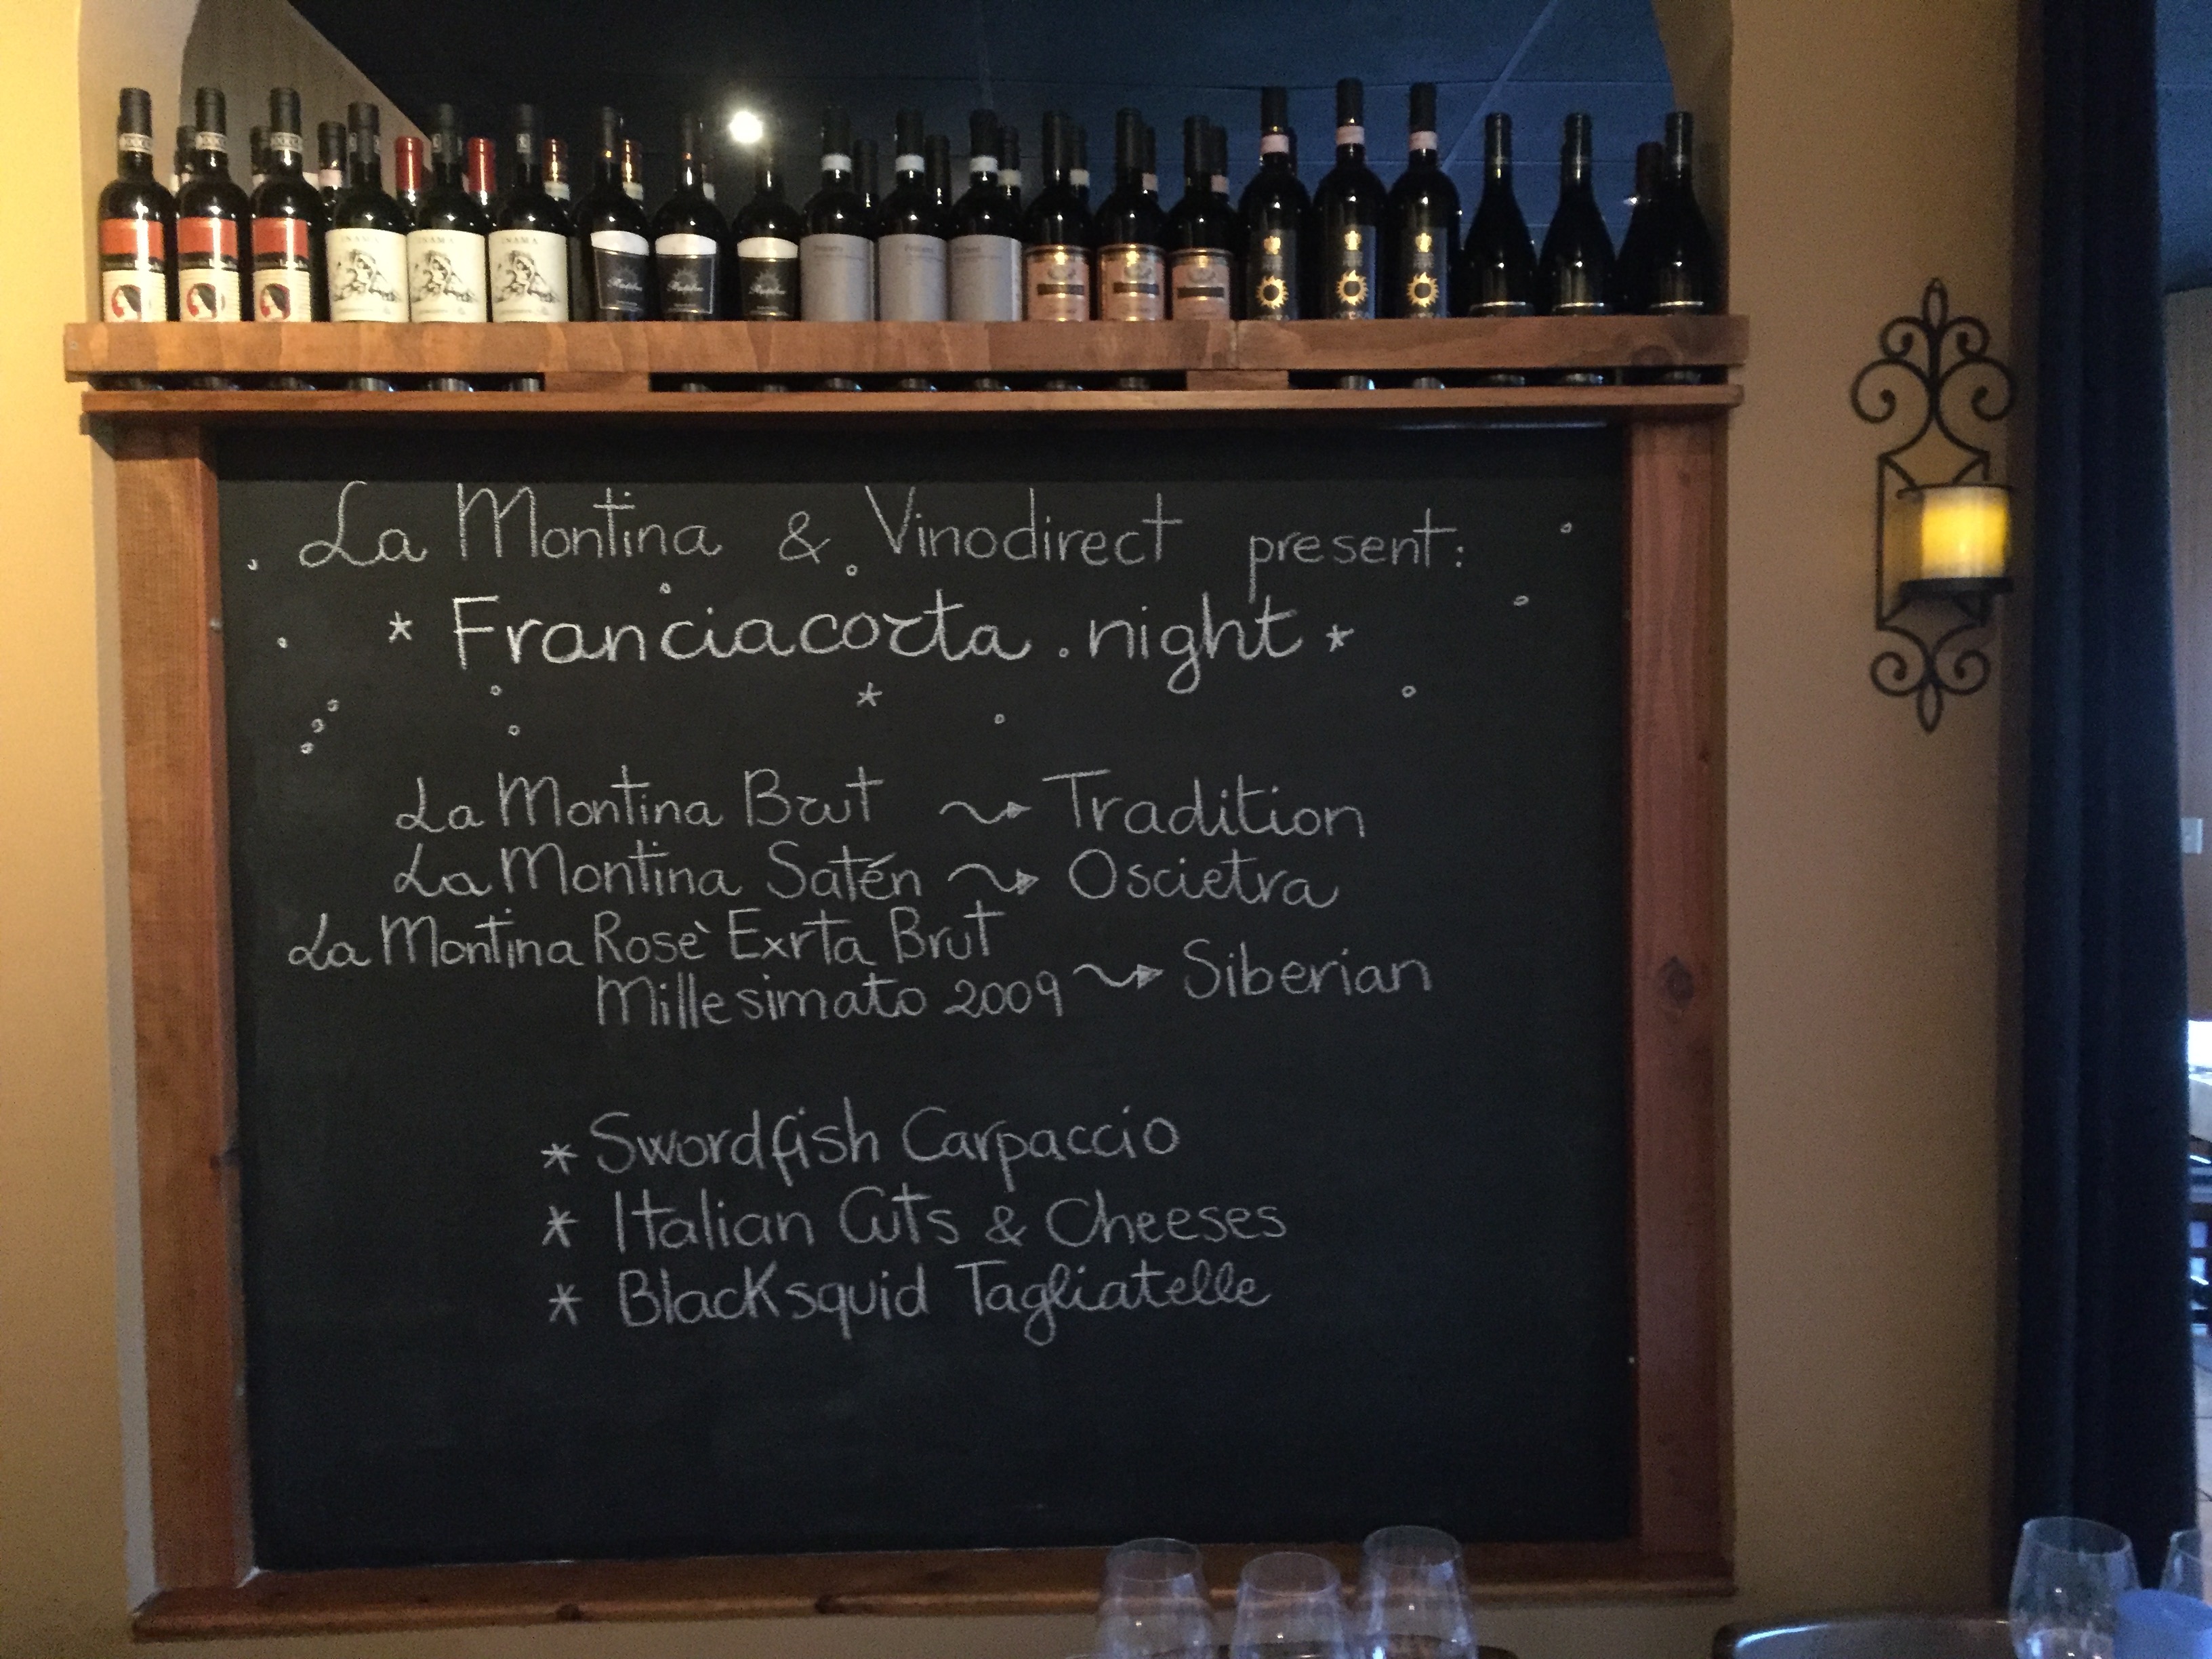 INAMA
INAMA
INAMA
La Montina & Vinodirect present:
* Franciacorta night *
*
La Montina Brut → Tradition
La Montina Satén → Oscietra
La Montina Rosè Exrta Brut
Millesimato 2009 → Siberian
* Swordfish Carpaccio
* Italian Cuts & Cheeses
* Blacksquid Tagliatelle